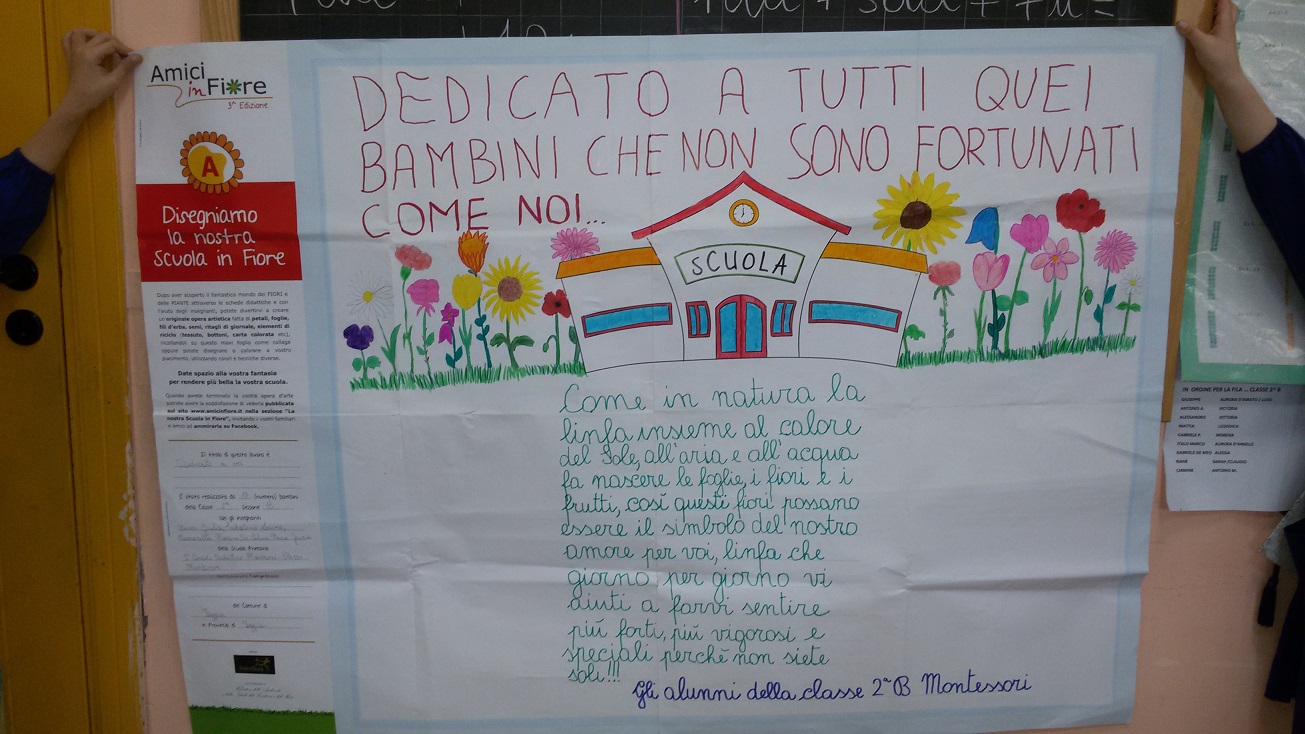 Amici
in Fiore
3ª Edizione
A
Disegniamo
la nostra
Scuola in Fiore
Dopo aver scoperto il fantastico mondo dei FIORI e
delle PIANTE attraverso le schede didattiche e con
l'aiuto degli insegnanti, potete divertirvi a creare
un'originale opera artistica fatta di petali, foglie,
fili d'erba, semi, ritagli di giornale, elementi di
riciclo (tessuto, bottoni, carta colorata etc),
incollandoli su questo maxi foglio come collage
oppure potete disegnare o colorare a vostro
piacimento, utilizzando colori e tecniche diverse.
Date spazio alla vostra fantasia
per rendere più bella la vostra scuola.
pubblicata
sul sito www.amicinfiore.it nella sezione "La
nostra Scuola in Fiore", invitando i vostri familiari
e amici ad ammirarla su Facebook.
Il titolo di questo lavoro è
Dedicato a voi
È stato realizzato da (numero) bambini
della Classe 2ª Sezione B
con gli insegnanti
della Scuola Primaria
del Comune di
e Provincia di
DEDICATO A TUTTI QUEI
BAMBINI CHE NON SONO FORTUNATI
COME NOI...
SCUOLA
Come in natura la
linfa insieme al calore
del Sole, all'aria e all'acqua
fa nascere le foglie, i fiori e i
frutti, così questi fiori possano
essere il simbolo del nostro
amore per voi, linfa che
giorno per giorno vi
aiuti a farvi sentire
più forti, più vigorosi e
speciali perchè non siete
soli!!!
Gli alunni della classe 2ª B Montessori
IN ORDINE PER LA FILA ... CLASSE 2ª B
GIUSEPPE AURORA D'AMATO / LUIGI
ANTONIO A. VICTORIA
ALESSANDRO VITTORIA
MATTIA LUDOVICA
GABRIELE P. MORENA
ITALO MARCO AURORA D'ANIELLO
GABRIELE DE MEO ALESSIA
SARAH /CLAUDIO
CARMINE ANTONIO M.